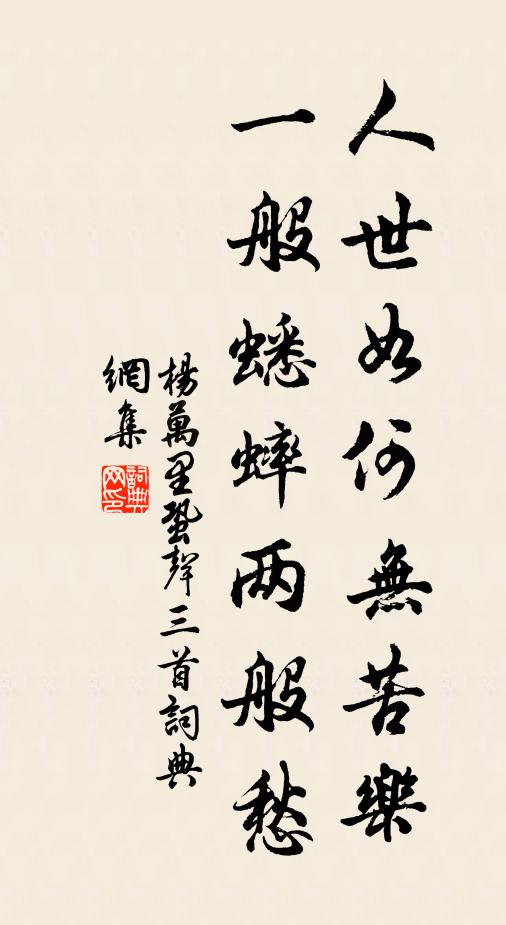 人世如何無苦樂
一般蟋蟀两般愁
楊萬里蛩聲三首詞典
網集
詞典
网印